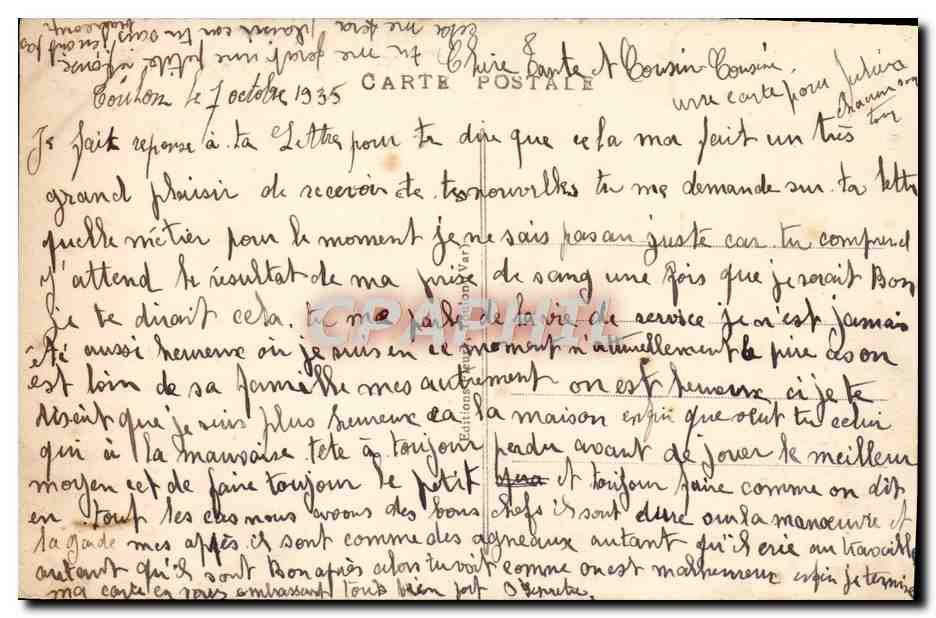 Chère Tante et Cousin Cousine.
CARTE POSTALE
Toulon le 7 octobre 1935
une carte pour
chacun son
tour
Je fait reponse à ta Lettre pour te dire que cela ma fait un très
grand plaisir de recevoir de tes nouvelles tu me demande sur ta lettre
quelle métier pour le moment je ne sais pas au juste car tu comprend
j'attend le résultat de ma prise de sang une fois que je serait Bon
je te dirait cela. tu me parle de la vie de service je n'est jamais
été aussi heureux où je suis en ce moment naturellement le pire as on
est loin de sa famille mes autrement on est heureux, si je te
disait que je suis plus heureux ca la maison enfin que veut tu celui
qui à la mauvaise tete à toujour perdu avant de jouer le meilleur
moyen cet de faire toujour le petit et toujour faire comme on dit
en tout les cas nous avons des bons chefs ils sont dure sur la manœuvre et
la garde mes après ils sont comme des agneaux autant qu'ils crie au travaille
autant qu'ils sont Bon après alors tu voit comme on est malheureux enfin je termine
ma carte en vous embrassant tous bien fort
tu me ferat une petite réponse
cela me fera plaisir con tu sais j'en ait pas
beaucoup
Editions Toulon (Var)
CPAPHIL